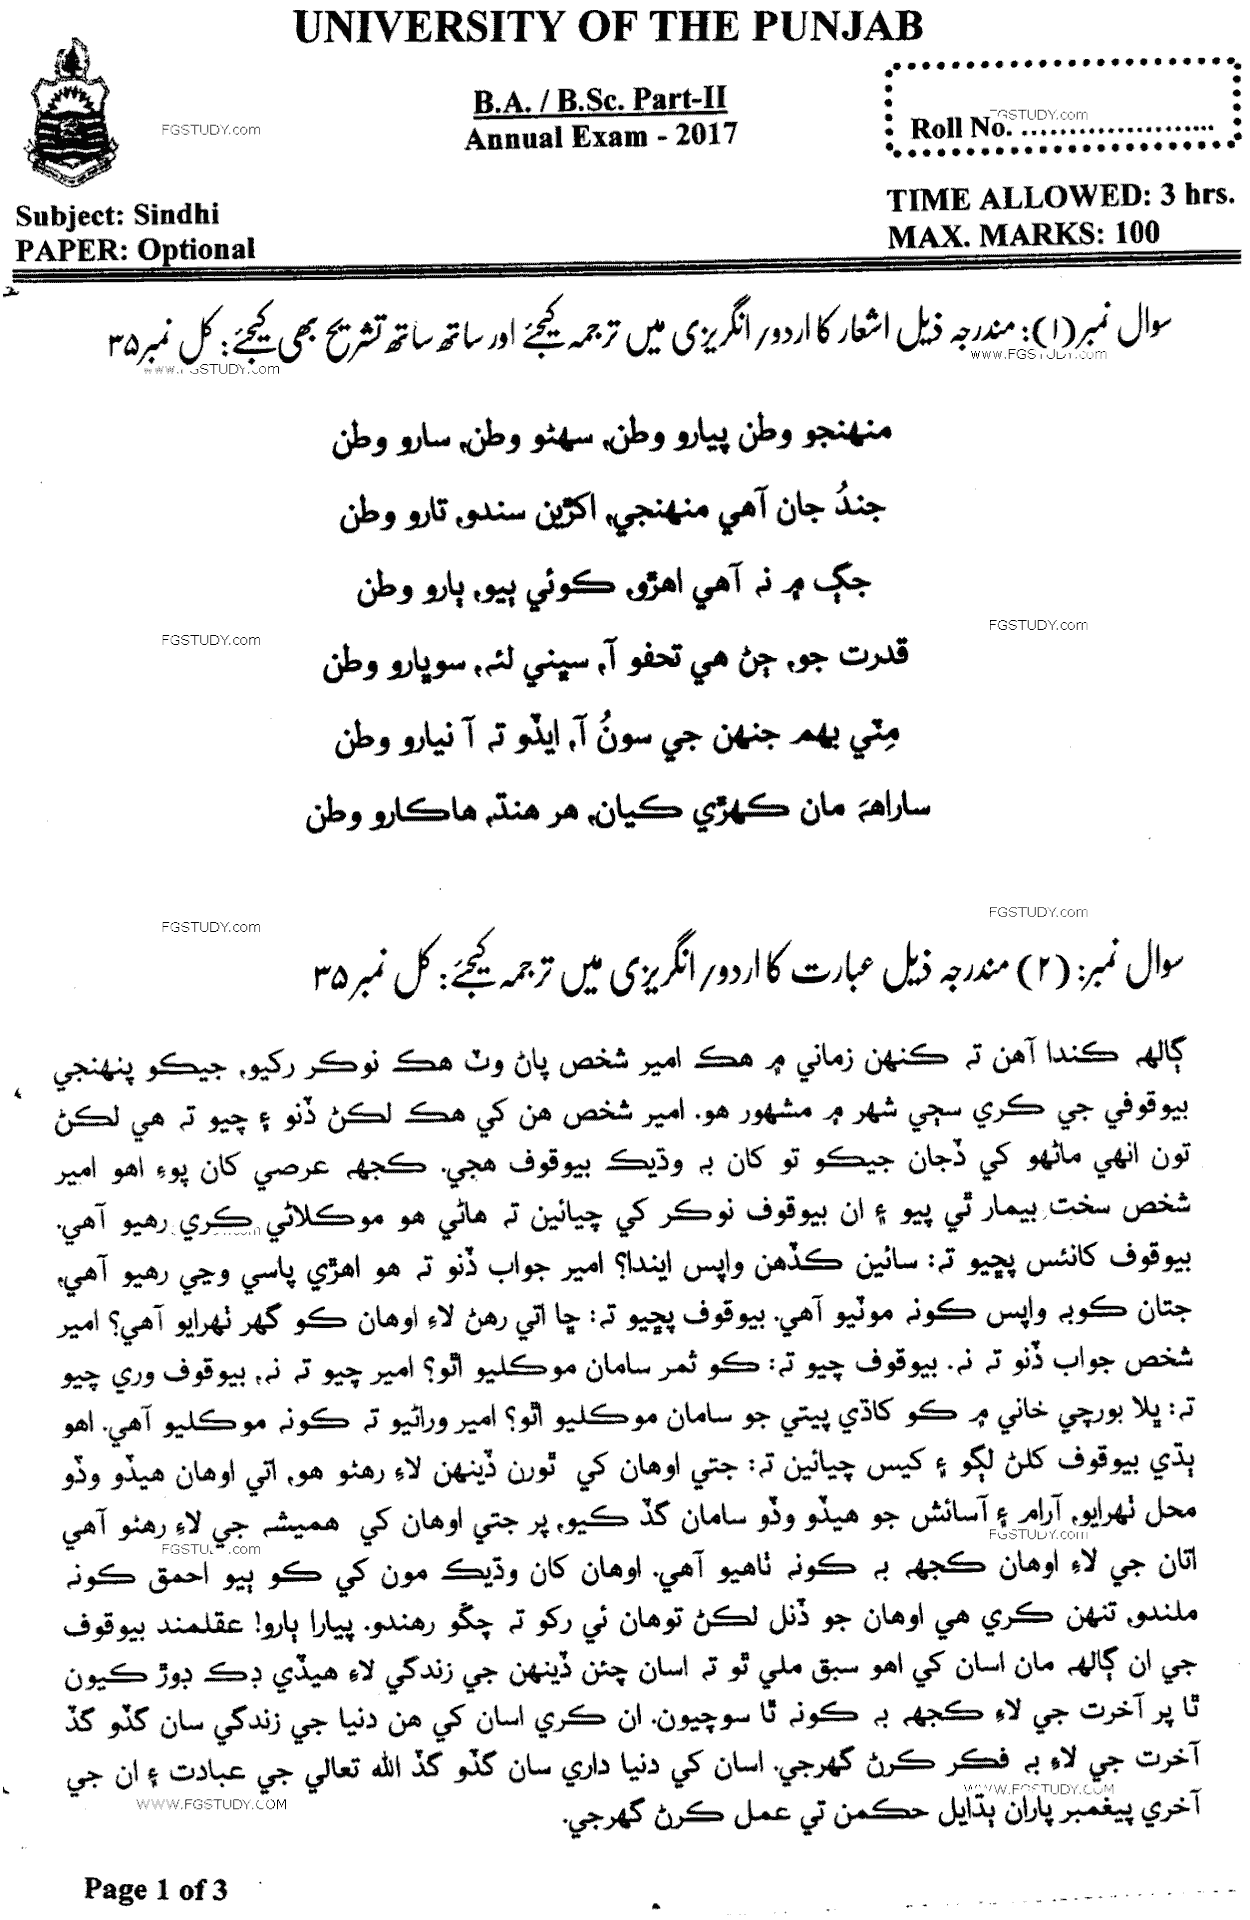 UNIVERSITY OF THE PUNJAB
B.A. / B.Sc. Part-II
Annual Exam - 2017
FGSTUDY.com
FGSTUDY.com
Roll No. ......................
Subject: Sindhi
PAPER: Optional
TIME ALLOWED: 3 hrs.
MAX. MARKS: 100
سوال نمبر(۱): مندرجہ ذیل اشعار کا اردو/انگریزی میں ترجمہ کیجئے اور ساتھ ساتھ تشریح بھی کیجئے: کل نمبر۳۵
www.FGSTUDY.com
www.FGSTUDY.com
منهنجو وطن پيارو وطن، سهڻو وطن، سارو وطن
جندُ جان آهي منهنجي، اکڙين سندو، تارو وطن
جڳ ۾ نہ آهي اهڙو، ڪوئي ٻيو، ٻارو وطن
قدرت جو، ڄڻ هي تحفو آ، سڀني لئہ، سوڀارو وطن
FGSTUDY.com
FGSTUDY.com
مِٽي بهہ جنهن جي سونُ آ، ايڏو تہ آ نيارو وطن
ساراهہَ مان ڪهڙي ڪيان، هر هنڌ، هاڪارو وطن
FGSTUDY.com
FGSTUDY.com
سوال نمبر: (۲) مندرجہ ذیل عبارت کا اردو/انگریزی میں ترجمہ کیجئے: کل نمبر ۳۵
ڳالهہ ڪندا آهن تہ ڪنهن زماني ۾ هڪ امير شخص پاڻ وٽ هڪ نوڪر رکيو، جيڪو پنهنجي
بيوقوفي جي ڪري سڄي شهر ۾ مشهور هو. امير شخص هن کي هڪ لڪڻ ڏنو ۽ چيو تہ هي لڪڻ
تون انهي ماڻهو کي ڏجان جيڪو تو کان بہ وڌيڪ بيوقوف هجي. ڪجهہ عرصي کان پوءِ اهو امير
شخص سخت بيمار ٿي پيو ۽ ان بيوقوف نوڪر کي چيائين تہ هاڻي هو موڪلاڻي ڪري رهيو آهي.
بيوقوف کانئس پڇيو تہ: سائين ڪڏهن واپس ايندا؟ امير جواب ڏنو تہ هو اهڙي پاسي وڃي رهيو آهي،
جتان ڪوبہ واپس ڪونہ موٽيو آهي. بيوقوف پڇيو تہ: ڇا اتي رهڻ لاءِ اوهان ڪو گهر ٺهرايو آهي؟ امير
شخص جواب ڏنو تہ نہ. بيوقوف چيو تہ: ڪو ثمر سامان موڪليو اٿو؟ امير چيو تہ نہ، بيوقوف وري چيو
تہ: ڀلا بورچي خاني ۾ ڪو کاڌي پيتي جو سامان موڪليو اٿو؟ امير وراڻيو تہ ڪونہ موڪليو آهي. اهو
ٻڌي بيوقوف کلڻ لڳو ۽ کيس چيائين تہ: جتي اوهان کي ٿورن ڏينهن لاءِ رهڻو هو، اتي اوهان هيڏو وڏو
محل ٺهرايو، آرام ۽ آسائش جو هيڏو وڏو سامان گڏ ڪيو، پر جتي اوهان کي هميشہ جي لاءِ رهڻو آهي
FGSTUDY.com
FGSTUDY.com
اتان جي لاءِ اوهان ڪجهہ بہ ڪونہ ٺاهيو آهي. اوهان کان وڌيڪ مون کي ڪو ٻيو احمق ڪونہ
ملندو، تنهن ڪري هي اوهان جو ڏنل لڪڻ توهان ئي رکو تہ چڱو رهندو. پيارا ٻارو! عقلمند بيوقوف
جي ان ڳالهہ مان اسان کي اهو سبق ملي ٿو تہ اسان چئن ڏينهن جي زندگي لاءِ هيڏي ڊڪ ڊوڙ ڪيون
ٿا پر آخرت جي لاءِ ڪجهہ بہ ڪونہ ٿا سوچيون. ان ڪري اسان کي هن دنيا جي زندگي سان گڏو گڏ
آخرت جي لاءِ بہ فڪر ڪرڻ گهرجي. اسان کي دنيا داري سان گڏو گڏ الله تعالي جي عبادت ۽ ان جي
WWW.FGSTUDY.COM
WWW.FGSTUDY.COM
آخري پيغمبر پاران ٻڌايل حڪمن تي عمل ڪرڻ گهرجي.
Page 1 of 3